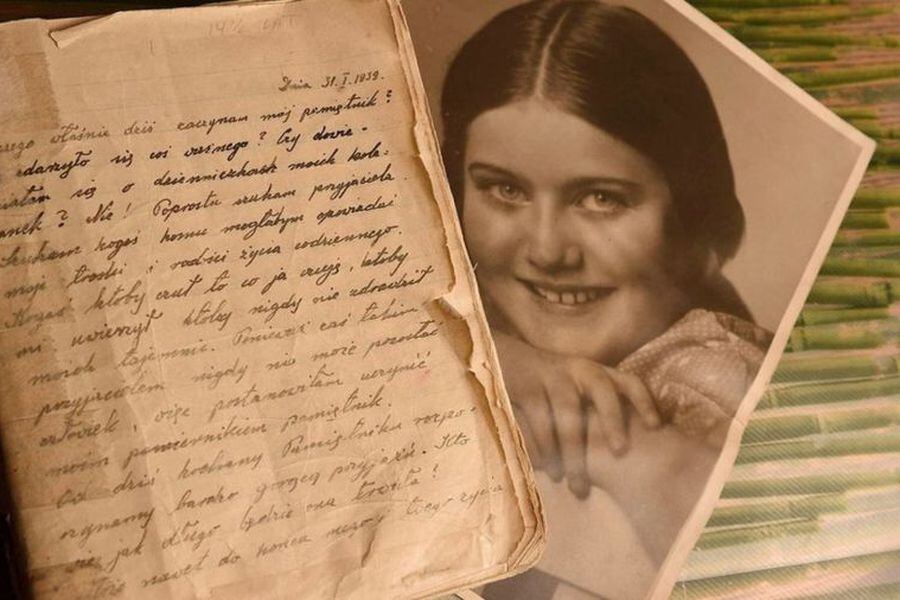 14½ LAT
Dnia 31.I.1939.
właśnie dziś zaczynam mój pamiętnik?
zdarzyło się coś ważnego? Czy dowie-
się o dzienniczkach moich kole-
żanek? Nie! Poprostu szukam przyjaciela.
Szukam kogoś komu mogłabym opowiadać
moje troski i radości życia codziennego.
Kogoś ktoby czuł to co ja czuję, ktoby
mi uwierzył ktoby nigdy nie zdradził
moich tajemnic. Ponieważ zaś takim
przyjacielem nigdy nie może pozostać
człowiek, więc postanowiłam uczynić
moim powiernikiem pamiętnik.
Od dziś kochany Pamiętniku rozpo-
czynamy bardzo gorącą przyjaźń. Kto
wie jak długo będzie ona trwała?
nawet do końca mego życia